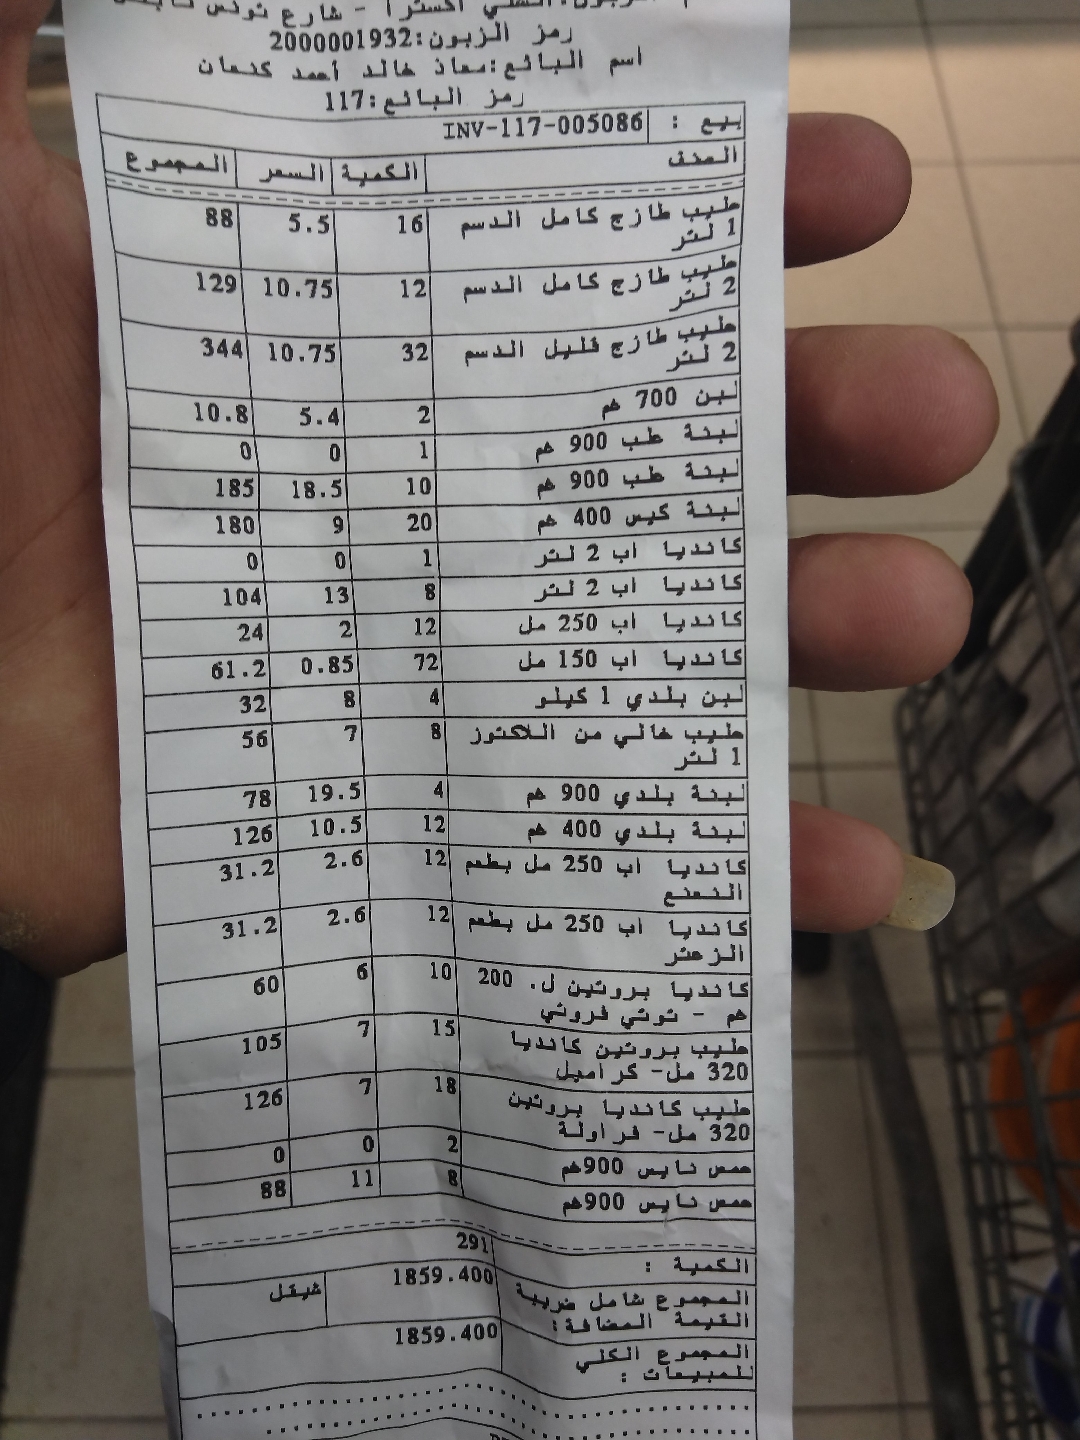 شارع تونس
رمز الزبون:2000001932
اسم البائع:معاذ خالد أحمد كنعان
رمز البائع:117
بيع : INV-117-005086
الصنف الكمية السعر المجموع
حليب طازج كامل الدسم 16 5.5 88
1 لتر
حليب طازج كامل الدسم 12 10.75 129
2 لتر
حليب طازج قليل الدسم 32 10.75 344
2 لتر
لبن 700 غم 2 5.4 10.8
لبنة علب 900 غم 1 0 0
لبنة علب 900 غم 10 18.5 185
لبنة كيس 400 غم 20 9 180
كانديا أب 2 لتر 1 0 0
كانديا أب 2 لتر 8 13 104
كانديا أب 250 مل 12 2 24
كانديا أب 150 مل 72 0.85 61.2
لبن بلدي 1 كيلو 4 8 32
حليب خالي من اللاكتوز 8 7 56
1 لتر
لبنة بلدي 900 غم 4 19.5 78
لبنة بلدي 400 غم 12 10.5 126
كانديا أب 250 مل بطعم 12 2.6 31.2
النعنع
كانديا أب 250 مل بطعم 12 2.6 31.2
الزعتر
كانديا بروتين ل. 200 10 6 60
غم - توتي فروتي
حليب بروتين كانديا 15 7 105
320 مل- كراميل
حليب كانديا بروتين 18 7 126
320 مل- فراولة
حمص نايس 900غم 2 0 0
حمص نايس 900غم 8 11 88
الكمية : 291
المجموع شامل ضريبة 1859.400 شيقل
القيمة المضافة:
المجموع الكلي 1859.400
للمبيعات :